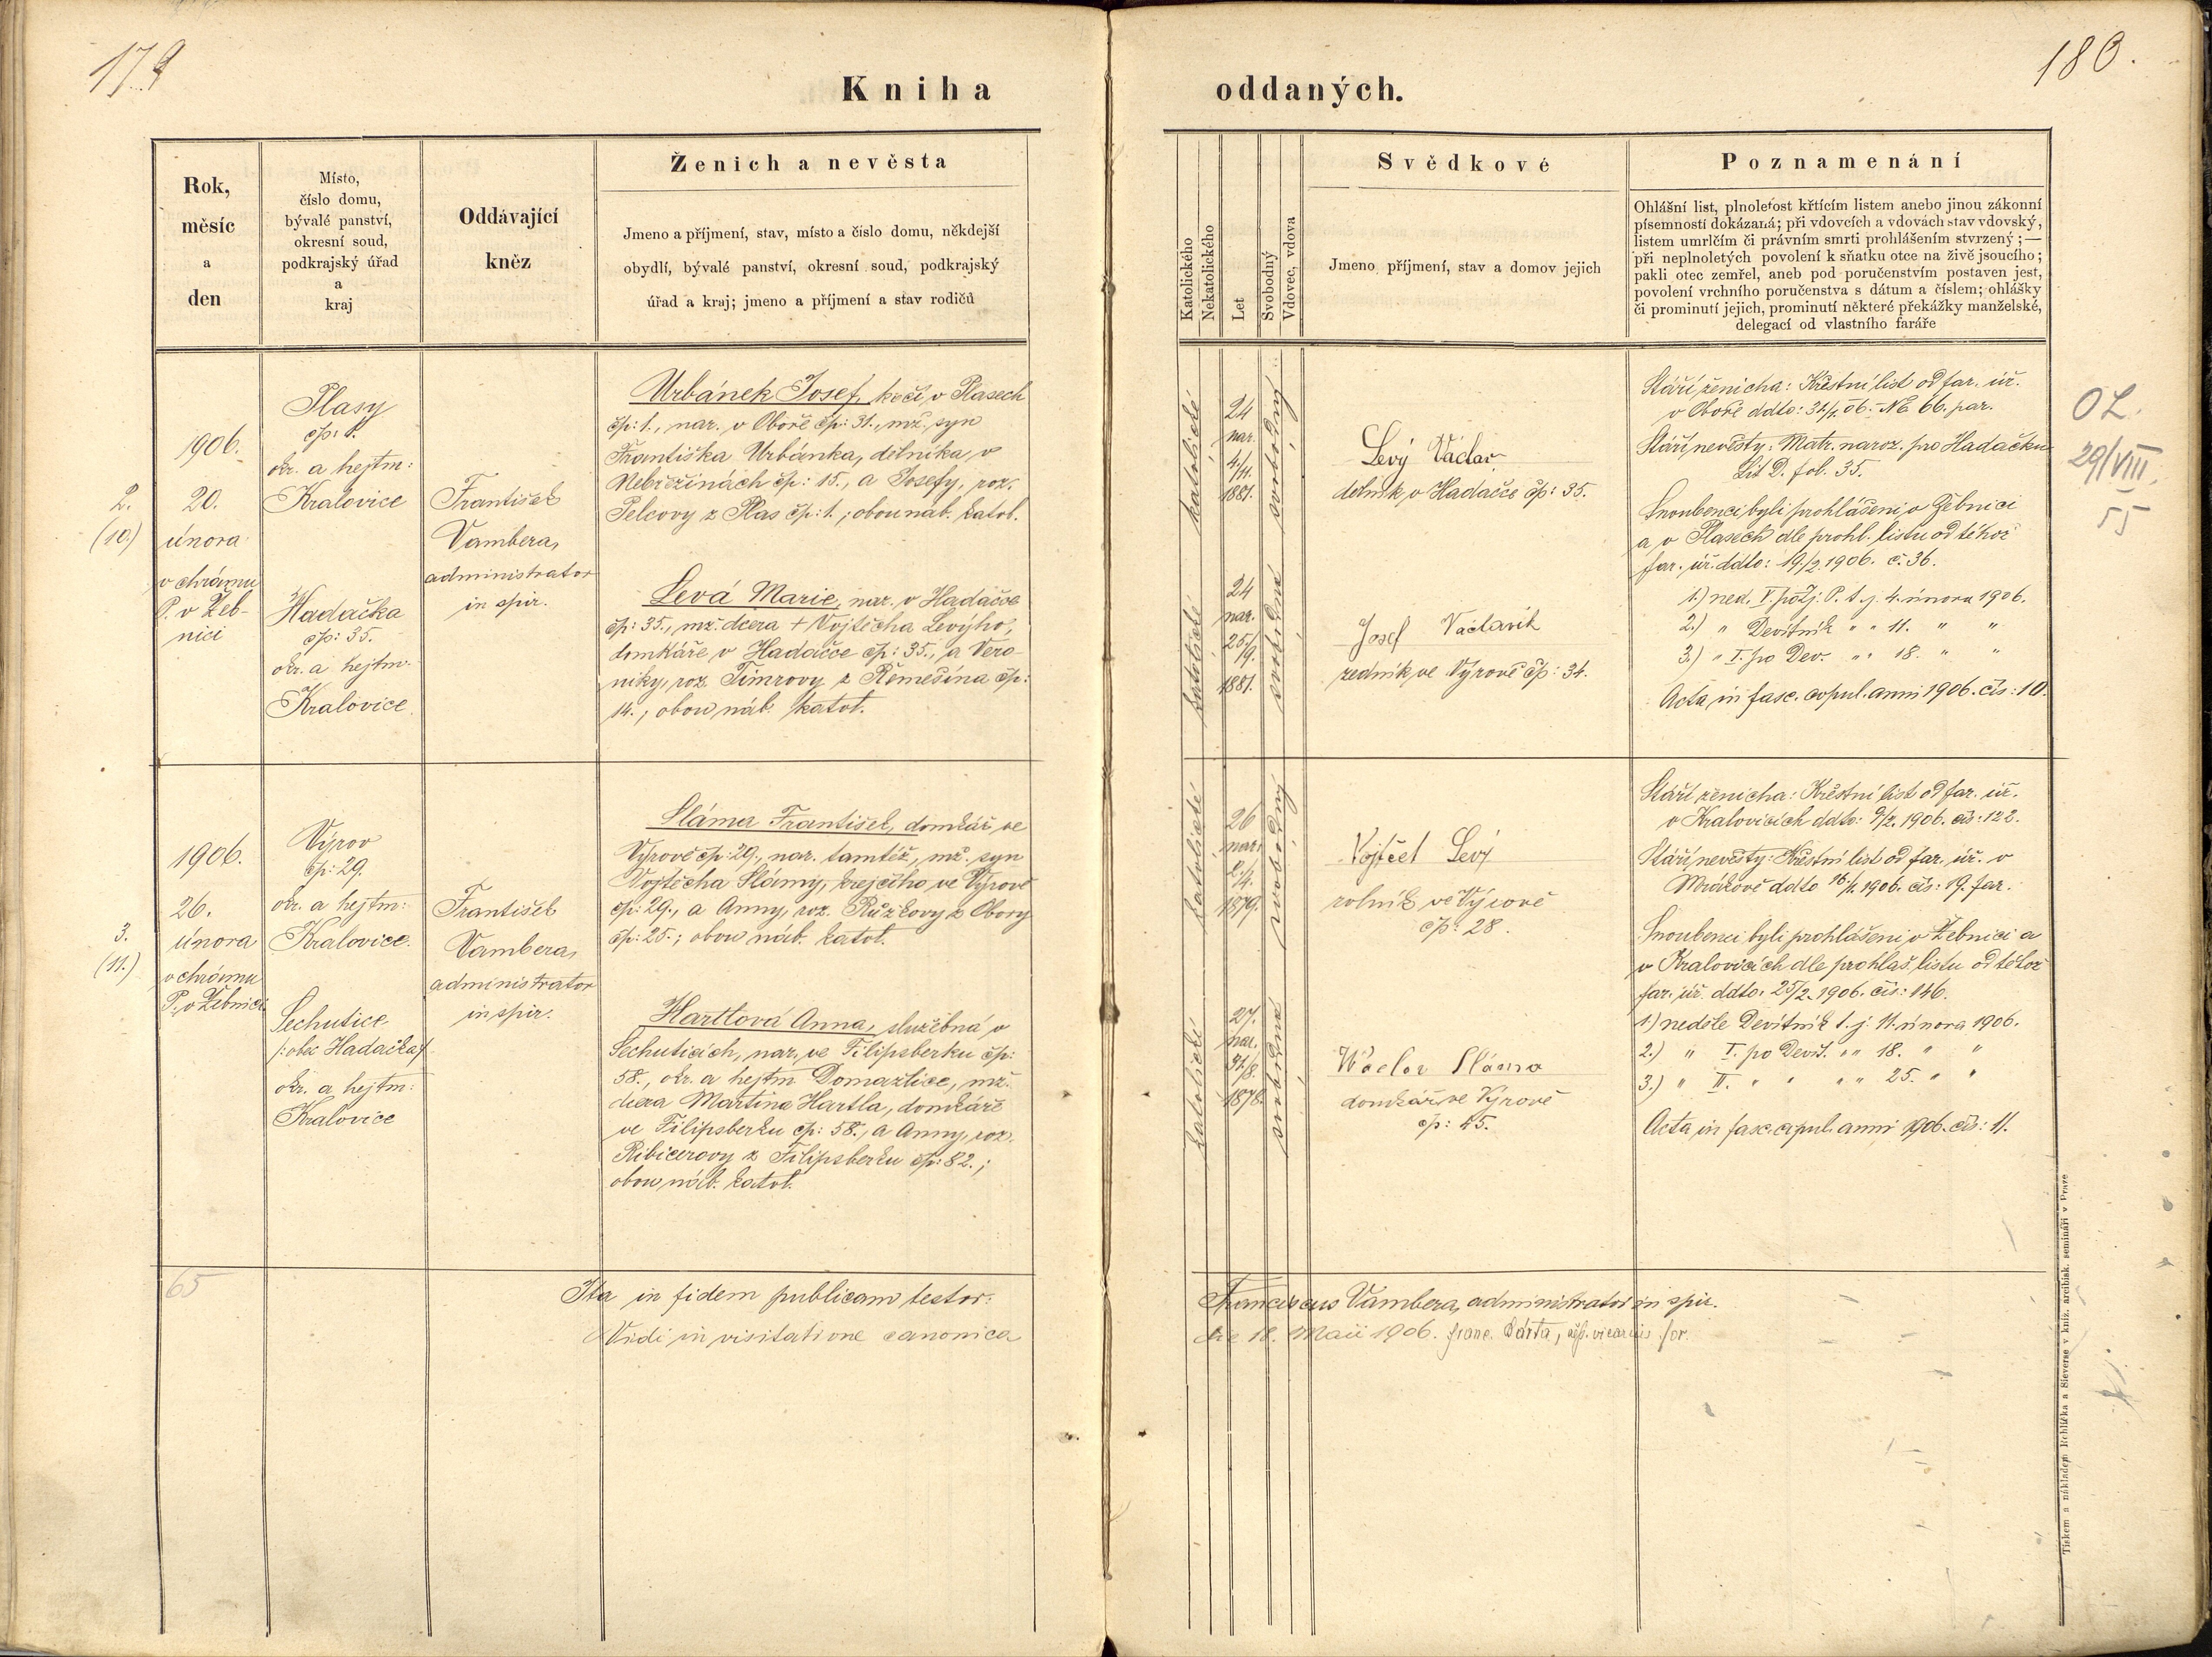 179
180.
Kniha oddaných.
Rok,
měsíc
a
den
Místo,
číslo domu,
bývalé panství,
okresní soud,
podkrajský úřad
a
kraj
Oddávající
kněz
Ženich a nevěsta
Jmeno a příjmení, stav, místo a číslo domu, někdejší
obydlí, bývalé panství, okresní soud, podkrajský
úřad a kraj; jmeno a příjmení a stav rodičů
Katolického
Nekatolického
Let
Svobodný
Vdovec, vdova
Svědkové
Jmeno, příjmení, stav a domov jejich
Poznamenání
Ohlášní list, plnoletost křtícím listem anebo jinou zákonní
písemností dokázaná; při vdovcích a vdovách stav vdovský,
listem umrlčím či právním smrti prohlášením stvrzený;—
při neplnoletých povolení k sňatku otce na živě jsoucího;
pakli otec zemřel, aneb pod poručenstvím postaven jest,
povolení vrchního poručenstva s dátum a číslem; ohlášky
či prominutí jejich, prominutí některé překážky manželské,
delegací od vlastního faráře
2.
(10.)
1906.
20.
února
v chrámu
P. v Žeb-
nici
Plasy
čp: 1.
okr. a hejtm:
Kralovice
Hadačka
čp: 35.
okr. a hejtm.
Kralovice
František
Vambera,
administrator
in spir.
Urbánek Josef, kočí v Plasech
čp: 1., nar. v Oboře čp: 31., mž. syn
Františka Urbánka, dělníka v
Nebřežinách čp: 15., a Josefy, roz.
Pelcovy z Plas čp: 1.; obou náb. katol.
Levá Marie, nar. v Hadačce
čp: 35., mž. dcera + Vojtěcha Levýho,
domkáře v Hadačce čp: 35., a Vero-
niky, roz. Tímrovy z Řemešína čp:
14.; obou náb. katol.
katolické
24
nar.
4./11.
1881.
svobodný
katolické
24
nar.
25/9.
1881.
svobodná
Levý Václav
dělník v Hadačce čp: 35.
Josef Václavík
ředník ve Výrově čp: 34.
Stáří ženicha: Křestní list od far. úř.
v Oboře ddto: 31/1. 06. No 66. par.
Stáří nevěsty: Matr. naroz. pro Hadačku
Lit D. fol. 35.
Snoubenci byli prohlášeni v Žebnici
a v Plasech dle prohl. listu od téhož
far. úř. ddto: 19./2. 1906. č. 36.
1.) ned. V. po Zj. P. t. j. 4. února 1906.
2.) " Devítník " " 11. " "
3.) " I. po Dev. " " 18. " "
Acta in fasc. copul. anni 1906. čís: 10.
OL.
29/VIII.
55
3.
(11.)
1906.
26.
února
v chrámu
P. v Žebnici
Výrov
čp: 29.
okr. a hejtm:
Kralovice.
Sechutice
/: obec Hadačka :/
okr. a hejtm:
Kralovice
František
Vambera,
administrator
in spir.
Sláma František, domkář ve
Výrově čp: 29., nar. tamtéž, mž. syn
Vojtěcha Slámy, krejčího ve Výrově
čp: 29., a Anny, roz. Růžkovy z Obory
čp: 25.; obou náb. katol.
Hartlová Anna, služebná v
Sechuticích, nar. ve Filipsberku čp:
58., okr. a hejtm Domažlice, mž.
dcera Martina Hartla, domkáře
ve Filipsberku čp: 58., a Anny, roz.
Ribicerovy z Filipsberku čp: 82.;
obou náb. katol.
katolické
26
nar.
2./4.
1879.
svobodný
katolické
27.
nar.
31/8.
1878.
svobodná
Vojtěch Levý
rolník ve Výrově
čp: 28.
Václav Sláma
domkář ve Výrově
čp: 45.
Stáří ženicha: Křestní list od far. úř.
v Kralovicích ddto: 9/2. 1906. čís: 122.
Stáří nevěsty: Křestní list od far. úř. v
Mrákově ddto 16./1. 1906. čís: 19. far.
Snoubenci byli prohlášeni v Žebnici a
v Kralovicích dle prohláš. listu od téhož
far. úř. ddto: 25/2. 1906. čís: 146.
1.) neděle Devítník t. j. 11. února 1906.
2.) " I. po Devít. " " 18. " "
3.) " II. " " " " 25. " "
Acta in fasc. copul. anni 1906. čís: 11.
65
Ita in fidem publicam testor: Franciscus Vambera, administrator in spir.
Vidi in visitatione canonica die 18. Maii 1906. Franc. Bárta, vicarius for.
Tiskem a nákladem Rohlíčka a Sieverse v kníž. arcibisk. semináři v Praze